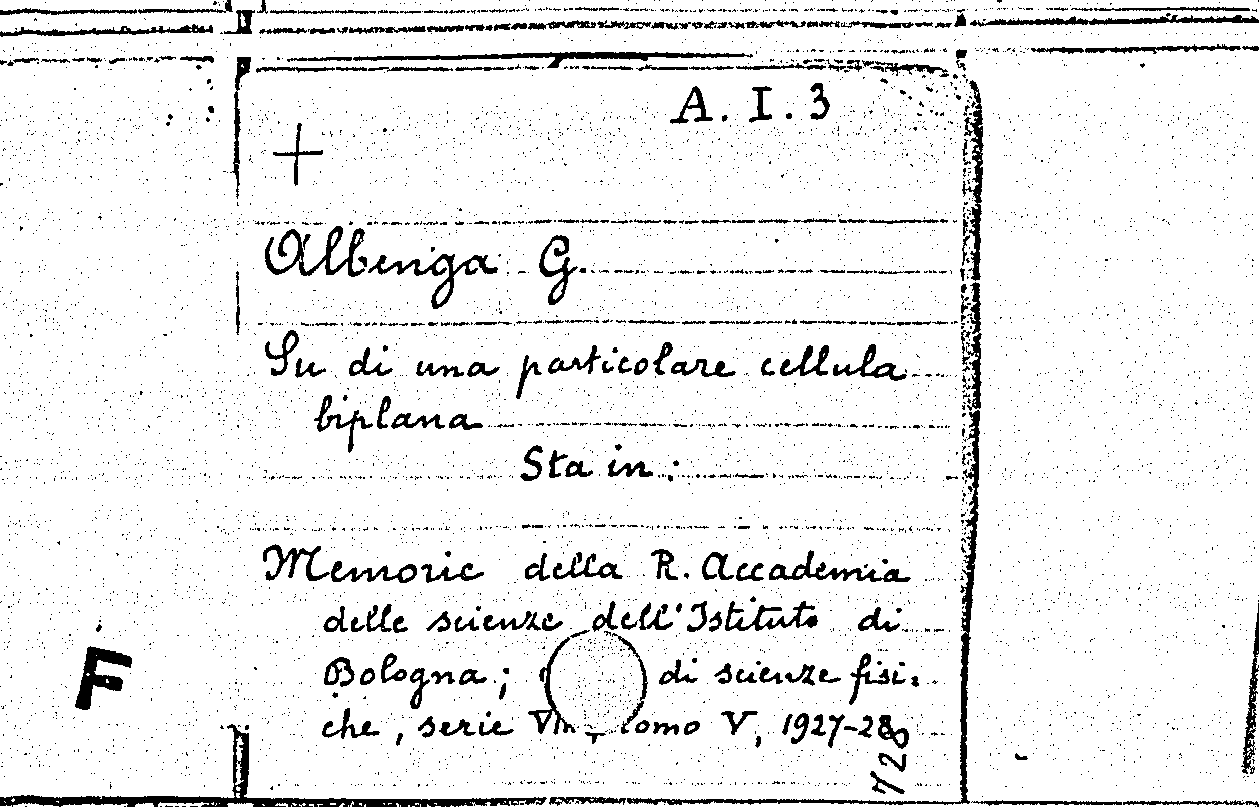 A. I. 3
+
Albenga G.
Su di una particolare cellula
biplana
Sta in:
Memorie della R. Accademia
delle scienze dell'Istituto di
Bologna; di scienze fisi-
che, serie VIII, tomo V, 1927-28
F